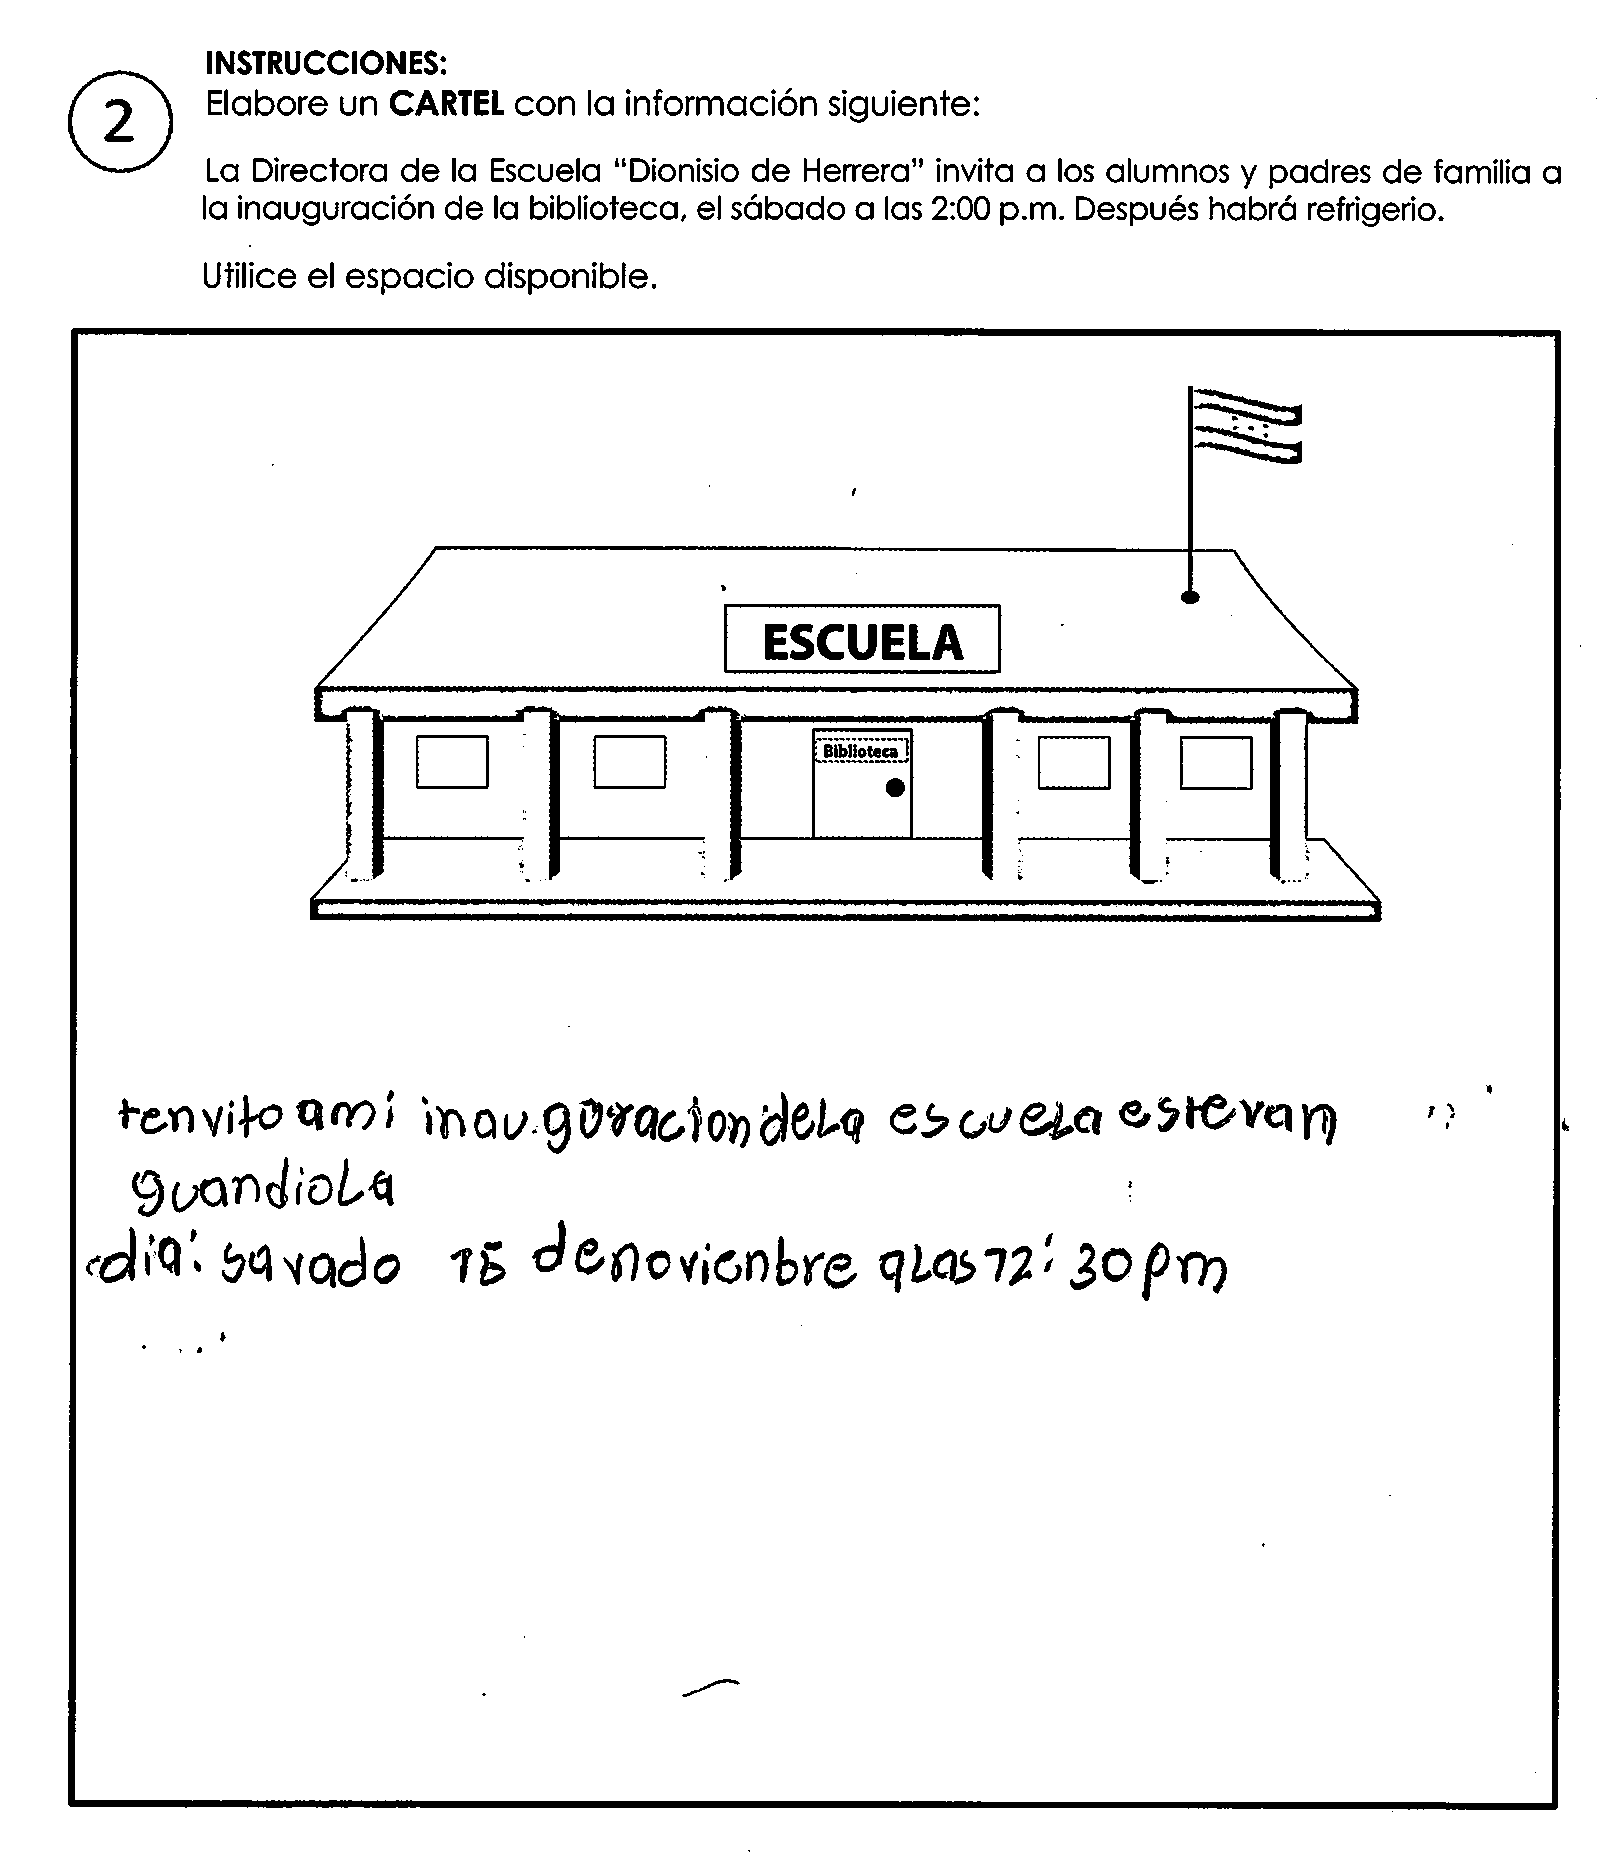 INSTRUCCIONES:
2
Elabore un CARTEL con la información siguiente:
La Directora de la Escuela "Dionisio de Herrera" invita a los alumnos y padres de familia a
la inauguración de la biblioteca, el sábado a las 2:00 p.m. Después habrá refrigerio.
Utilice el espacio disponible.
ESCUELA
Biblioteca
tenvito ami inauguracion dela escuela estevan
guandiola
dia: savado 15 de novienbre alas 12:30 pm